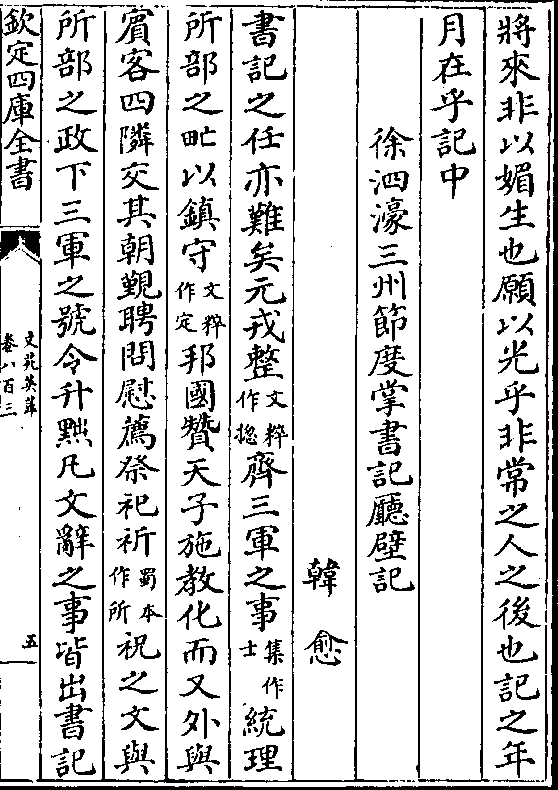 將來非以媚生也願以光乎非常之人之後也記之年
月在乎記中
徐泗濠三州節度掌書記廳壁記
韓愈
書記之任亦難矣元戎整文粹作揔齊三軍之事集作士統理
所部之甿以鎮守文粹作定邦國贊天子施教化而又外與
賓客四隣交其朝覲聘問慰薦祭祀祈蜀本作所祝之文與
所部之政下三軍之號令升黜凡文辭之事皆出書記
欽定四庫全書
文苑英華
卷八百三
五